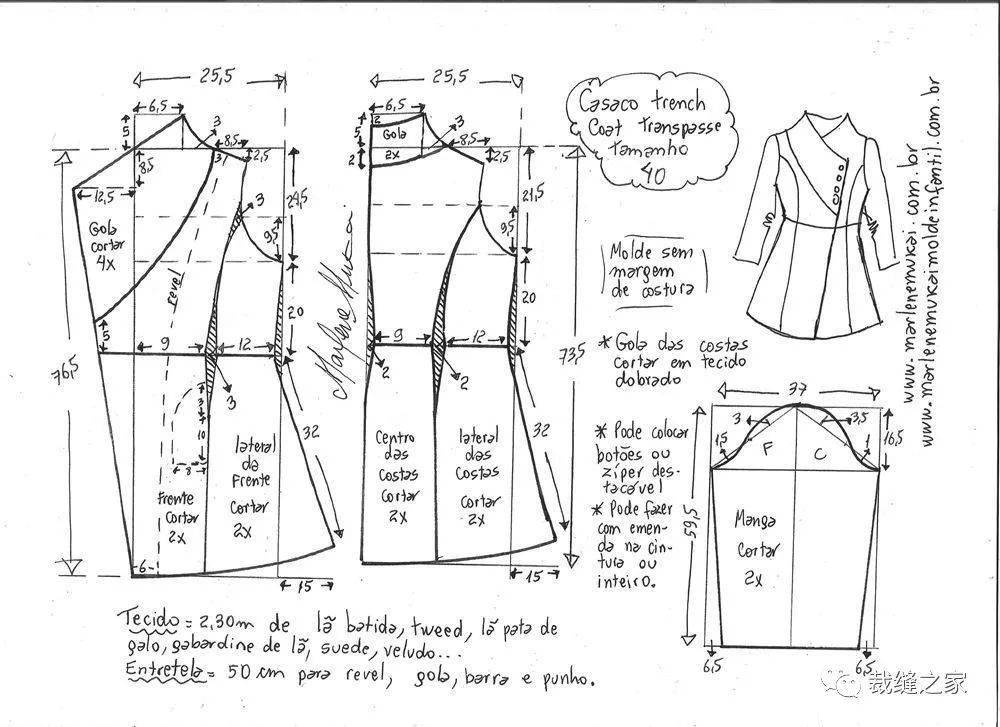 25,5
6,5
5
3
8,5
3
2,5
8,5
12,5
3
24,5
9,5
Gola
cortar
4x
revel
5
9
12
20
76,5
3
3
10
8
32
lateral
da
Frente
cortar
2x
Frente
cortar
2x
6
15
25,5
6,5
2
5
Gola
2x
2
3
8,5
2,5
21,5
9,5
9
12
20
73,5
2
2
32
Centro
das
costas
cortar
2x
lateral
das
costas
cortar
2x
15
Casaco trench
Coat transpasse
tamanho
40
Molde sem
margem
de costura
* Gola das costas
cortar em tecido
dobrado
* Pode colocar
botões ou
zíper des-
tacável
* Pode fazer
com emen-
da na cin-
tura ou
inteiro.
www.marlenemukai.com.br
www.marlenemukaimoldeinfantil.com.br
37
3
3,5
1,5
1
16,5
F
C
59,5
Manga
cortar
2x
6,5
6,5
Tecido = 2,30m de lã batida, tweed, lã pata de
galo, gabardine de lã, suede, veludo...
Entretela = 50 cm para revel, gola, barra e punho.
裁缝之家